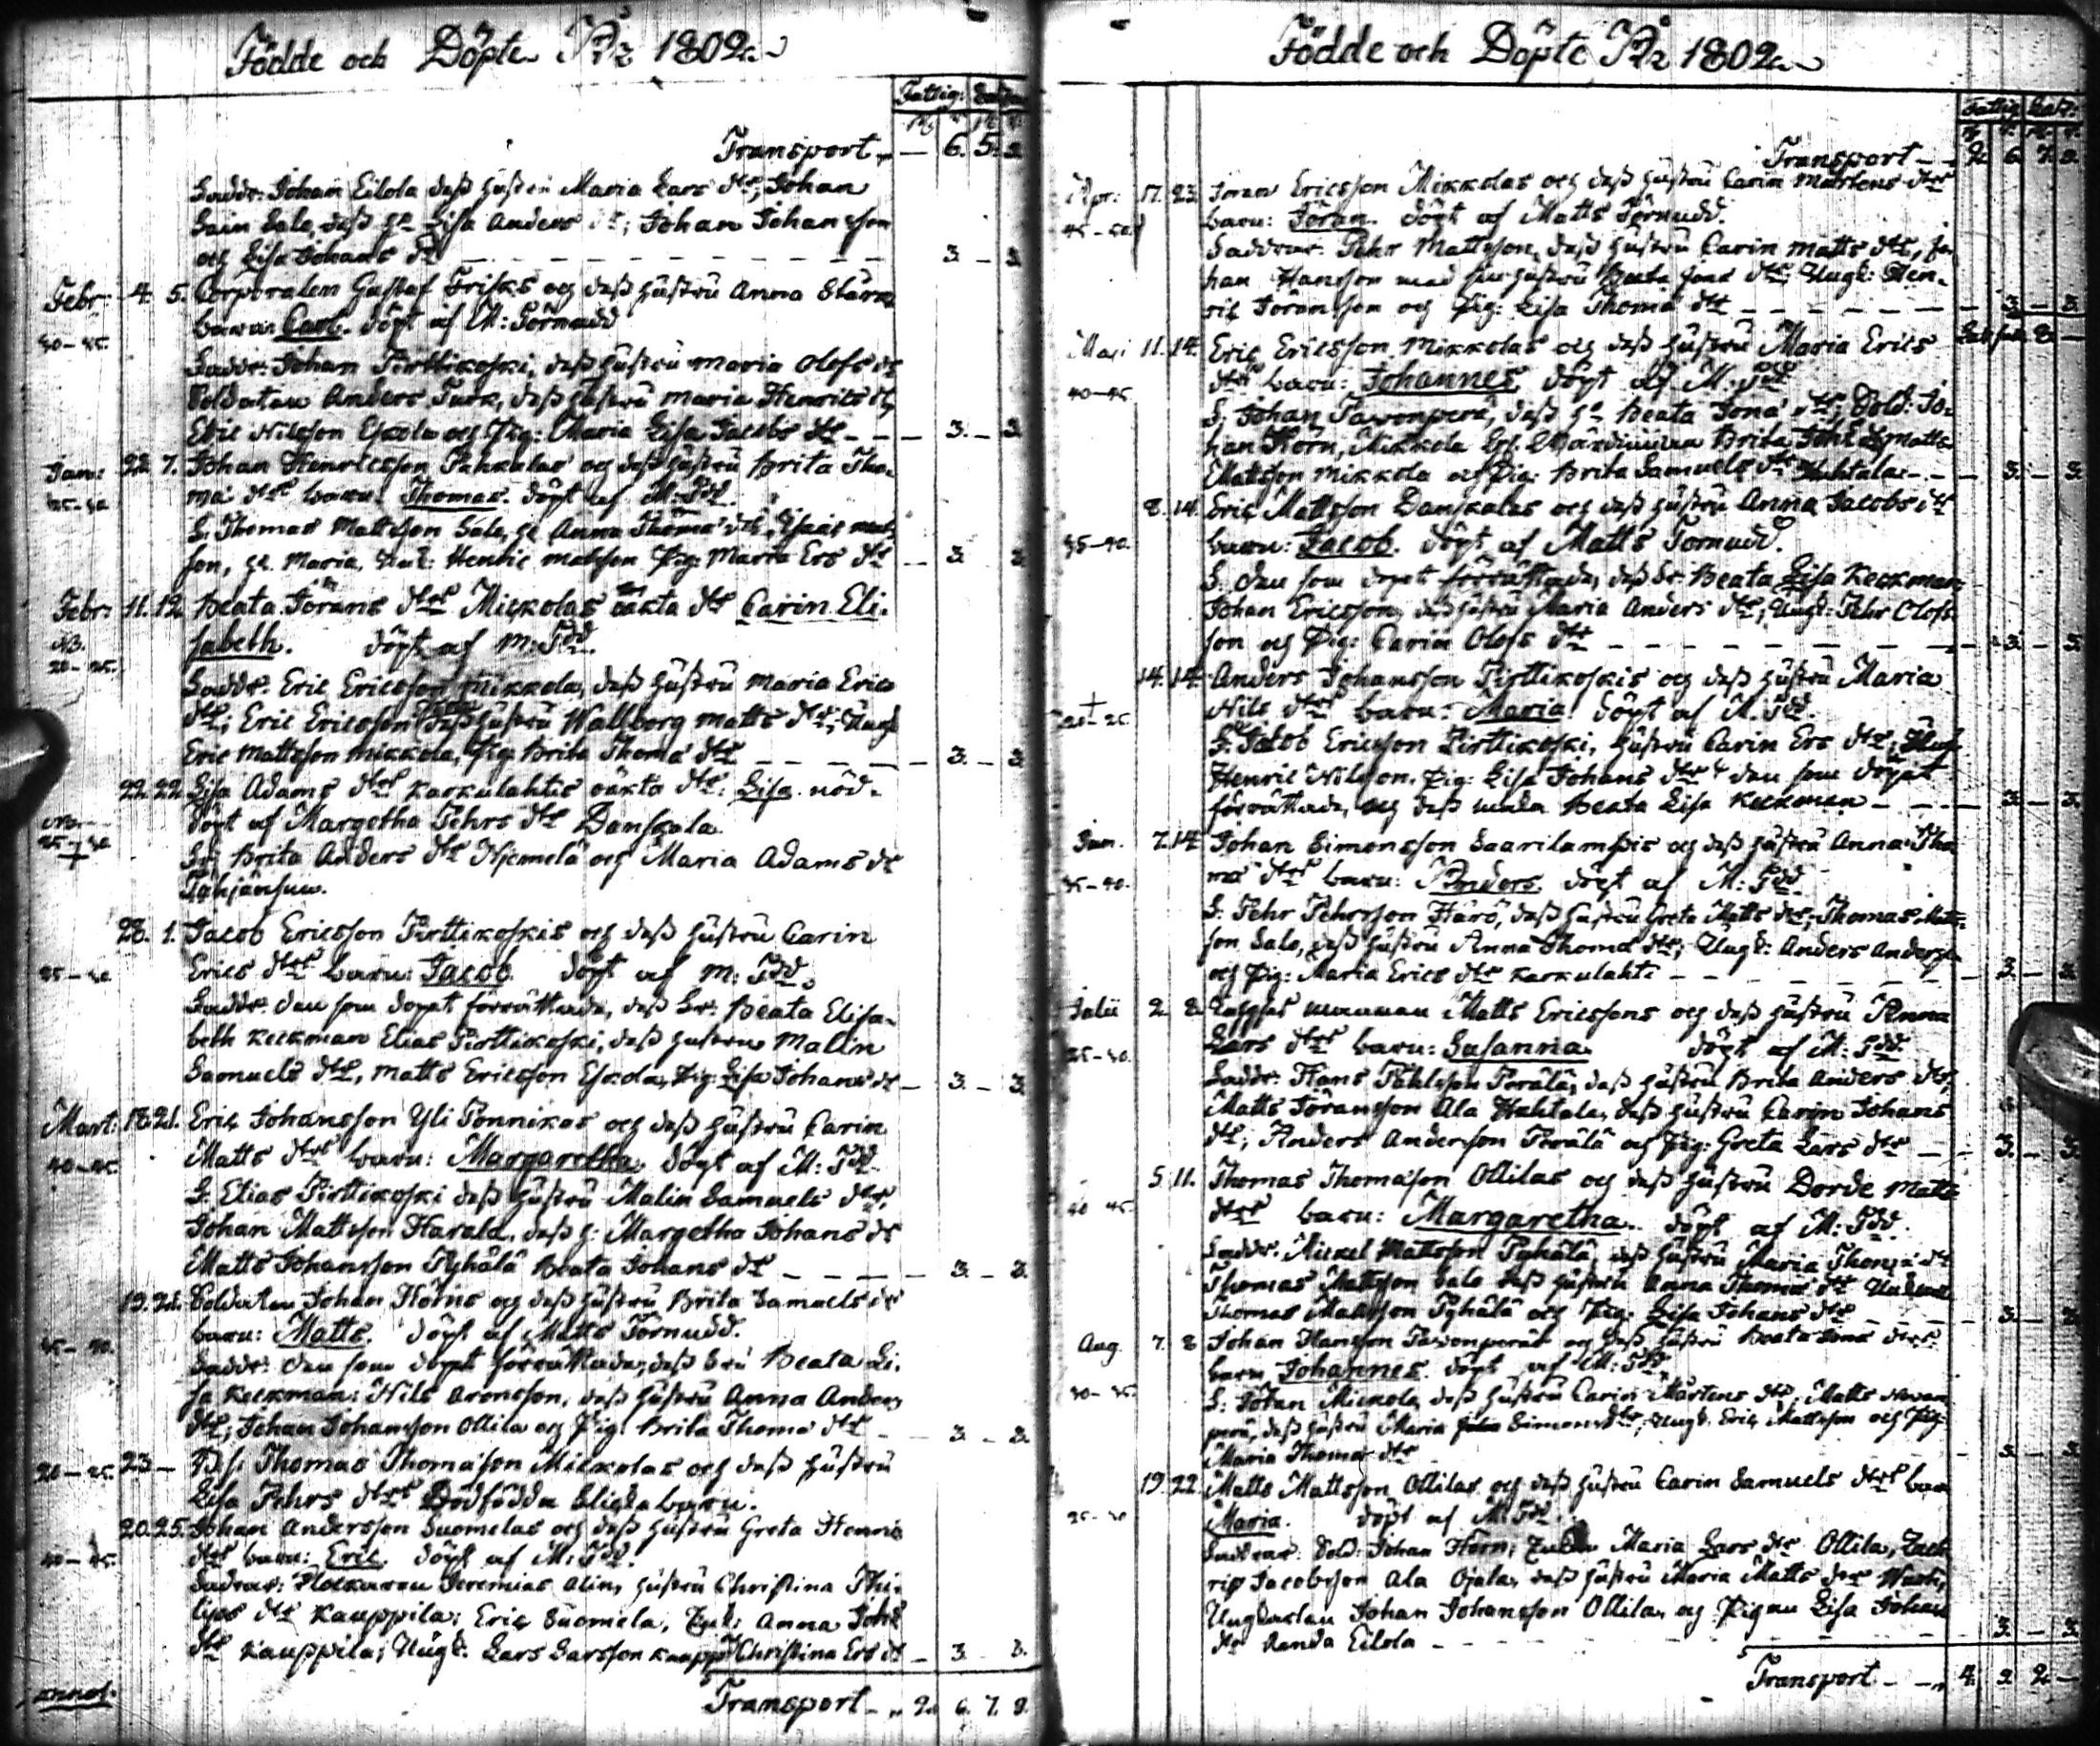 Födde och Döpte År 1802.
Fattig:
Transport - 6. 5. 2
Faddr: Johan Eilola dess hustru Maria Lars dtr, Johan
Sain Salo, dess h. Lisa Anders dr; Johan Johansson
och Lisa Johans dr - 3. - 3
Febr: 4. 5. Corporalen Gustaf Frisks och dess hustru Anna Stark
30-35. barn: Carl. döpt af M: Törnudd
Faddr: Johan Pirttikoski, dess hustru Maria Olofs dr
Soldaten Anders Turk, dess hustru Maria Henrics dr
Eric Nilsson Eskola och Pig: Maria Lisa Jacobs dr - 3. - 3
Jan: 22. 7. Johan Henricsson Pahkalas och dess hustru Brita Tho-
25-30 mæ dtrs barn: Thomas. döpt af M: Tdd.
F. Thomas Mattsson Salo, h. Anna Thomæ dtr, Esaias Matts
son, h. Maria, Ungk: Henric Matsson Pig: Maria Ers dtr - 3. 3
Febr: 11. 12. Beata Jörans dtrs Mickolas oäkta dtr Carin Eli-
NB. sabeth. döpt af M: Tdd.
20-25.
Faddr. Eric Ericsson Mikkola, dess hustru Maria Erics
dtr; Eric Ericsson dess hustru Wallborg Matts dtr; Ungk
Eric Mattsson Mikkola, Pig Brita Thomæ dtr - 3. - 3
22. 22. Lisa Adams dtrs Karkulahtis oäkta dtr: Lisa. nöd-
döpt af Margetha Pehrs dtr Danskala.
25-30
+
Fr: Brita Anders dtr Njemelä och Maria Adams dr
28. 1. Jacob Ericsson Pirttikoskis och dess hustru Carin
Erics dtrs barn: Jacob. döpt af M: Tdd.
Faddr. den som dopet förrättade, dess Fr: Beata Elisa-
beth Keckman Elias Pirttikoski, dess hustru Malin
Samuels dtr, Matts Ericsson Eskola, Pig: Lisa Johans dr - 3. - 3
Mart: 18. 21. Eric Johansson Yli Ponnikas och dess hustru Carin
40-45. Matts dtrs barn: Margaretha döpt af M: Tdd.
F. Elias Pirttikoski dess hustru Malin Samuels dtr.
Johan Mattsson Harala, dess h: Margetha Johans dr
Matts Johansson Pyhälä Beata Johans dr - 3. - 3.
19. 21. Soldaten Johan Horns och dess hustru Brita Samuels dr
barn: Matts. döpt af Matts Törnudd.
Faddr. den som dopet förrättade, dess Fru Beata Li-
sa Keckman: Nils Aronsson, dess hustru Anna Anders
dtr; Johan Johansson Ollila och Pig. Brita Thomæ dtr - 3. - 3.
20-25. 23 - Thomas Thomæson Mickolas och dess hustru
Lisa Pehrs dtrs Dödfödda barn.
20. 25. Johan Andersson Suomelas och dess hustru Greta Henric
40-45. dtrs barn: Eric. döpt af M: Tdd.
Fadrar: Klockaren Jeremias Alin, hustru Christina Phi-
lips dtr Kauppila; Eric Suomela, Anna Johs
dtr Kauppila; Ungk: Lars Larsson Kaupp. Christina Ers dr - 3. 3.
Transport - 2. 6. 7. 2.
annot.
Födde och Döpte År 1802.
Fattig
Transport - 2. 6. 7. 2.
Apr: 17. 23. Jöran Ericsson Mikkolas och dess hustru Carin Mårtens dtrs
barn: Jöran. döpt af Matts Törnudd.
Faddrar. Pehr Mattsson, dess hustru Carin Matts dtr, Jo
han Hansson med sin hustru Beata Jons dtr Ungk: Hen-
ric Göransson och Pig: Lisa Thomæ dtr - 3. - 3.
Maji 11. 14. Eric Ericsson Mikkolas och dess hustru Maria Erics
40-45 dtrs barn: Johannes döpt af M: Tdd
F: Johan Tavonperä, dess h. Beata Jonæ dtr; Sold: Jo-
han Horn, Mikkola Brita Joh. dr Matts
Mattsson Mikkola och Pig: Brita Samuels dtr Huhtala - 3. - 3.
8. 14. Eric Mattsson Danskalas och dess hustru Anna Jacobs dtrs
35-40. barn: Jacob. döpt af Matts Törnudd.
F. den som dopet förrättade, dess Fr. Beata Lisa Keckman,
Johan Ericsson, dess hustru Maria Anders dtr; Ungk: Pehr Olofs
son och Pig: Carin Olofs dtr - 3. - 3.
14. 14. Anders Johansson Pirttikoskis och dess hustru Maria
+ Nils dtrs barn: Maria. döpt af M. Tdd.
20-25.
F. Jacob Ericsson Pirttikoski, hustru Carin Ers dtr;
Henric Nilsson. Pig: Lisa Johans dtr & den som dopet
förrättade, och dess maka Beata Lisa Keckman - 3. - 3.
Jun. 7. 14. Johan Simonsson Saarilampis och dess hustru Anna Tho
35-40. mæ dtrs barn: Anders. döpt af M: Tdd.
F: Pehr Pehrsson Härö, dess hustru Greta Matts dtr; Thomas Matts-
son Salo, dess hustru Anna Thomæ dtr; Ungk: Anders Anderss
och Pig: Maria Erics dtr Karkulahti - 3. - 3.
Julii 2. 2. Matts Ericssons och dess hustru Anna
25-30. Lars dtrs barn: Susanna döpt af M: Tdd.
Faddr: Hans Påhlsson Perälä, dess hustru Brita Anders dtr,
Matts Göransson Ala Huhtala, dess hustru Carin Johans
dtr; Anders Andersson Perälä och Pig: Greta Lars dtr - 3. - 3.
5. 11. Thomas Thomæson Ollilas och dess hustru Dorde Matts
40 45. dtrs barn: Margaretha. döpt af M: Tdd.
Faddr. Mickel Mattsson Pyhälä, dess hustru Maria Thomæ dr
Thomas Mattsson Salo dess hustru Anna Thomæ dtr
Thomas Mattsson Pyhälä och Pig: Lisa Johans dtr - 3. - 3.
Aug. 7. 8 Johan Hansson Tavonperäs och dess hustru Beata Jonæ dtrs
30-35. barn Johannes. döpt af M: Tdd.
F: Jöran Mickola, dess hustru Carin Mårtens dtr, Matts
perä, dess hustru Maria Simons dtr, Ungk. Eric Mattsson och Pig:
Maria Thomæ dtr - 3. - 3.
19. 22. Matts Mattsson Ollilas och dess hustru Carin Samuels dtrs barn
25-30 Maria. döpt af M: Tdd.
Faddrar: Sold: Johan Horn; Maria Lars dtr Ollila, Zach
ris Jacobsson Ala Ojala, dess hustru Maria Matts dtr
Ungkarlen Johan Johansson Ollila, och Pigan Lisa Johans
dtr Eilola - 3. - 3.
Transport - 4. 2 2 -